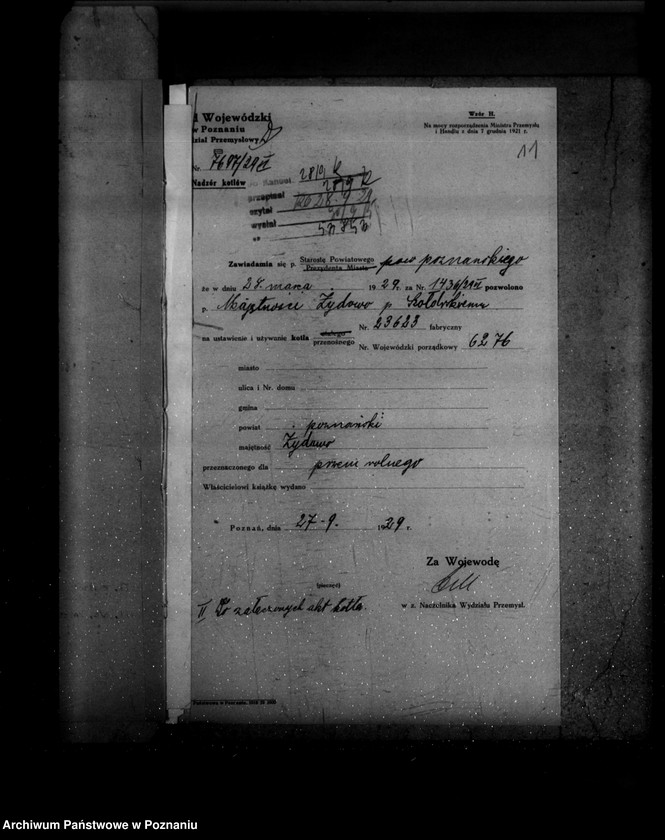 d Wojewódzki
w Poznaniu
dział Przemysłowy
Wzór II.
Na mocy rozporządzenia Ministra Przemysłu
i Handlu z dnia 7 grudnia 1921 r.
11
Nr. 7697/29 II
Nadzór kotłów
przepisał
czytał
wysłał
Zawiadamia się p. Starostę Powiatowego pow poznańskiego
Prezydenta Miasta
że w dniu 28. marca 1929. za Nr. 1436/29 II pozwolono
p. Majętności Żydowo p
na ustawienie i używanie kotła stałego
przenośnego
Nr. 23623 fabryczny
Nr. Wojewódzki porządkowy 6276
miasto
ulica i Nr. domu
gmina
powiat poznański
majętność Żydowo
przeznaczonego dla przem rolnego
Właścicielowi książkę wydano
Poznań, dnia 27-9. 1929 r.
Za Wojewodę
(pieczęć)
w z. Naczelnika Wydziału Przemysł.
II Do załączonych akt kotła.
Archiwum Państwowe w Poznaniu